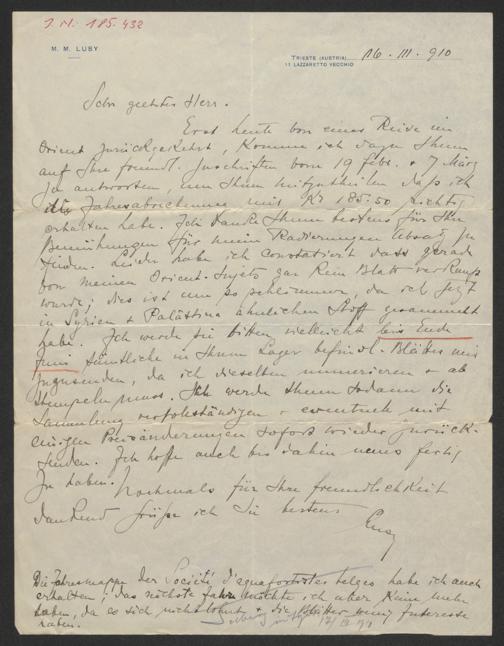 J. N. 185.432
M. M. LUSY
TRIESTE (AUSTRIA)
11 LAZZARETTO VECCHIO
16 . III . 910
Sehr geehrter Herr.
Erst heute von einer Reise im
Orient zurückgekehrt, komme ich dazu Ihnen
auf Ihre freundl. Zuschriften vom 19 Febr. + 7 März
zu antworten, um Ihnen mitzutheilen daß ich
die Jahresabrechnung mit Kr 185.50 richtig
erhalten habe. Ich danke Ihnen bestens für Ihre
Bemühungen für meine Radierungen Absatz zu
finden. Leider habe ich constatiert dass gerade
von meinen Orient-Sujets gar kein Blatt verkauft
wurde; dies ist um so schlimmer, da ich jetzt
in Syrien + Palästina ähnlichen Stoff gesammelt
habe. Ich werde sie bitten vielleicht bis Ende
Juni sämtliche in Ihrem Lager befindl. Blätter mir
zuzusenden, da ich dieselben numerieren + ab
stempeln muss. Ich werde Ihnen sodann die
Sammlung vervollständigen + eventuell mit
einigen Preisänderungen sofort wieder zurück-
senden. Ich hoffe auch bis dahin neues fertig
zu haben.
Nochmals für Ihre Freundlichkeit
dankend grüße ich Sie bestens
Lusy
Die Jahresmappe der Société d'aquafortistes belges habe ich auch
erhalten; das nächste Jahr möchte ich aber keine mehr
haben, da es sich nicht lohnt + die Blätter wenig Interesse
haben.